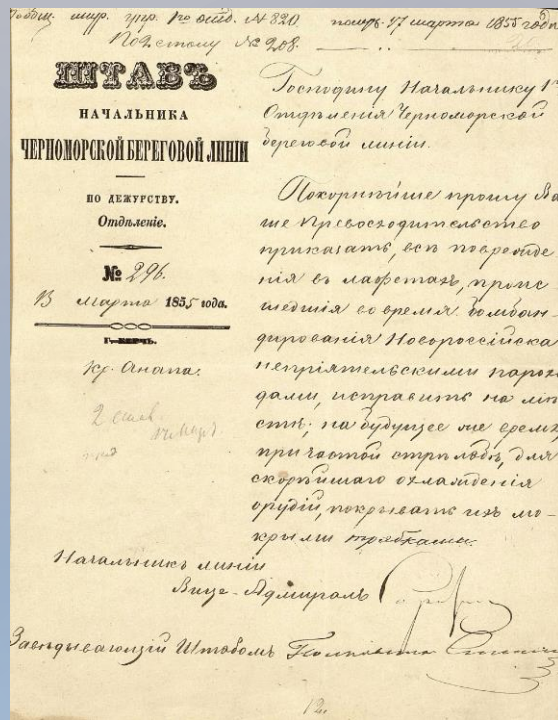 № 820
получ. 17 марта 1855 года
№ 208.
ШТАБЪ
НАЧАЛЬНИКА
ЧЕРНОМОРСКОЙ БЕРЕГОВОЙ ЛИНІИ
ПО ДЕЖУРСТВУ.
Отдѣленіе.
№ 296.
13 марта 1855 года.
Г. КЕРЧЬ.
Кр. Анапа.
Господину Начальнику 1го
Отдѣленія Черноморской
береговой линіи.
Покорнѣйше прошу Ва
ше Превосходительство
приказать, всѣ поврежде
нія въ лафетахъ, проис-
шедшія во время бомбан-
дированія Новороссійска
непріятельскими парохо
дами, исправить на мѣ
стѣ; на будущее же время,
при частой стрѣльбѣ, для
скорѣйшаго охлажденія
орудій, покрывать ихъ мо-
крыми тряпками.
Начальникъ линіи
Вице-Адмиралъ
Завѣдывающій Штабомъ Полковникъ
12.